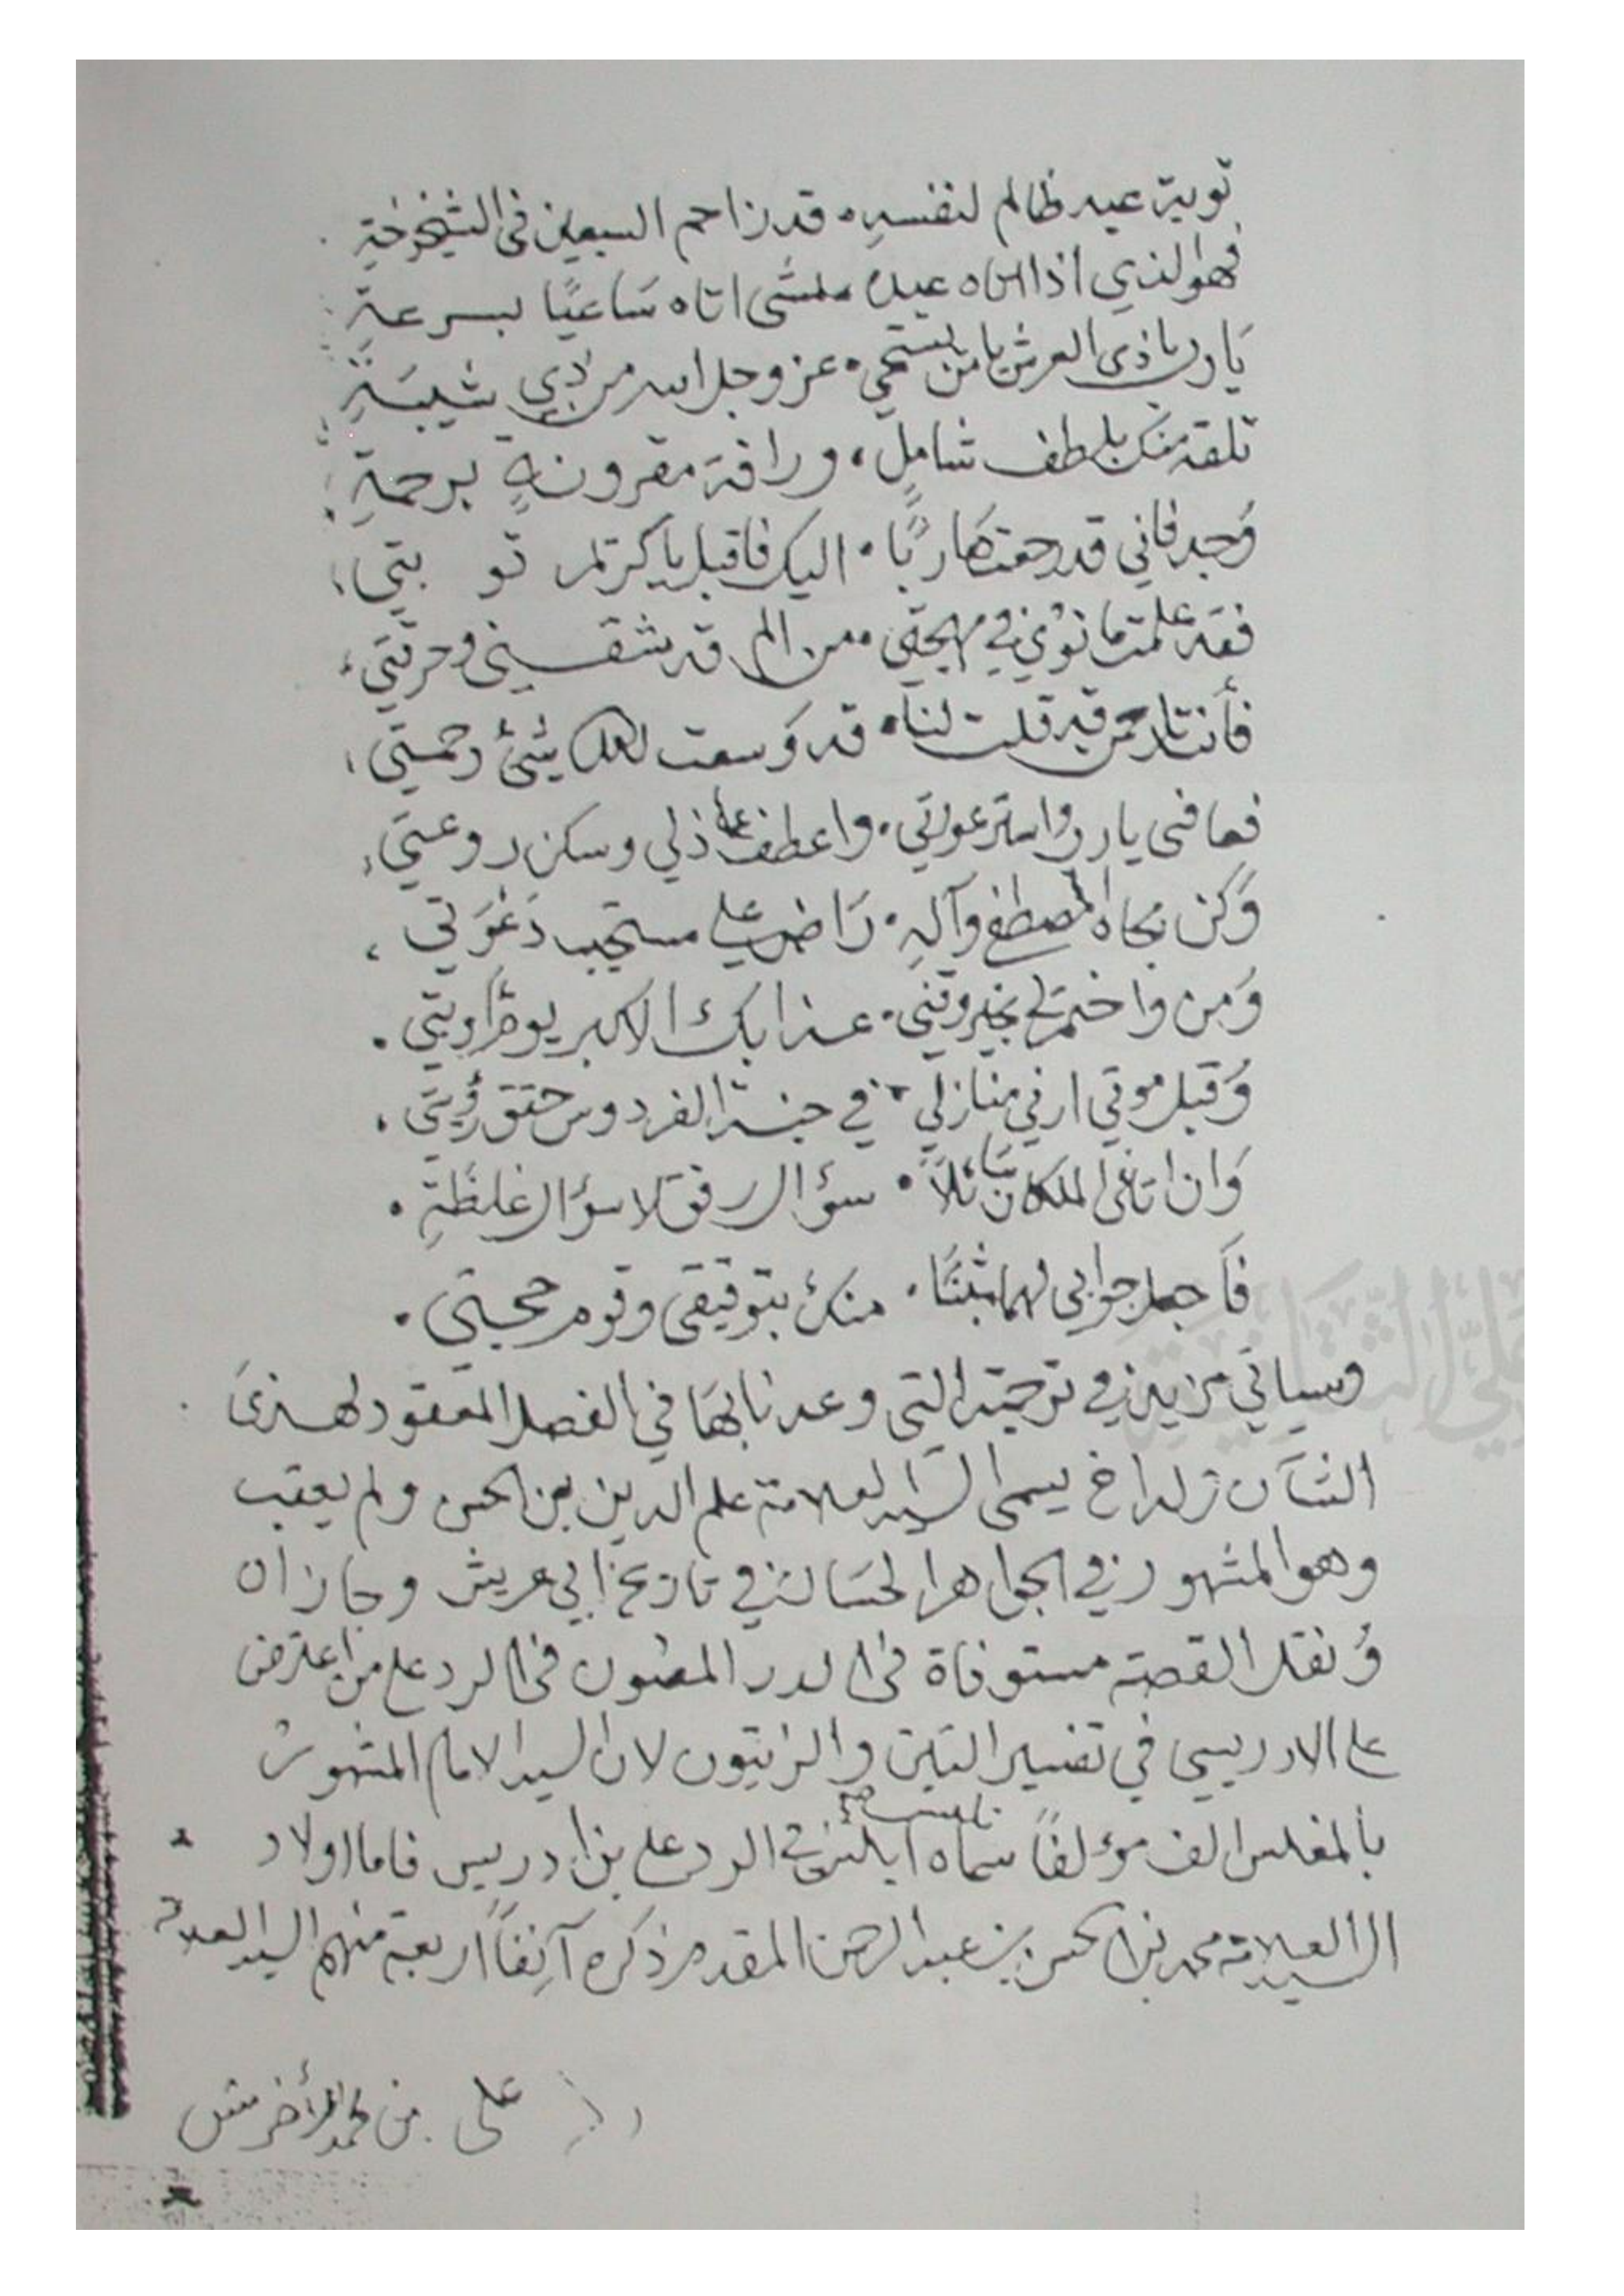 توبة عبد ظالم لنفسه، قد زاحم السبعين في الشيخوخة
فهو الذي اذا اتاه عبده مشى اتاه ساعيًا بسرعة
يا رب يا ذي العرش يا من يستحي، عز وجل الله من ذي شيبة
تلقه منك بلطف شامل، ورافة مقرونة برحمة
وجد فاني قد رجعت هاربًا، اليك فاقبل يا كريم توبتي
فقد علمت ما نوى في مهجتي، من الم قد شقني وحرقتي
فأنت يا رحمن قد قلت لنا، قد وسعت لكل شيئ رحمتي
فعافني يا رب واستر عورتي، واعطف على ذلي وسكن روعتي
وكن بجاه المصطفى وآله، راض علي مستجيب دعوتي
ومن واختم لي بخير وقني، عذابك الاكبر يوم أوبتي
وقبل موتي ارني منازلي، في جنة الفردوس حقق رؤيتي
وان اتاني الملكان سائلاً، سؤال رفق لا سؤال غلظة
فاجعل جوابي لهما مثبتًا، منك بتوفيقي وقوم حجتي
وسياتي مزيد في ترجمته التي وعدنا بها في الفصل المعقود لهذى
الشآن وله اخ يسمى السيد العلامة علم الدين بن الحسن ولم يعقب
وهو المشهور في الجواهر الحسان في تاريخ ابي عريش وجازان
ونقل القصة مستوفاة في الدر المصون في الرد على من اعترض
على الادريسي في تفسير التين والزيتون لان السيد الامام المشهور
بالمغلس الف مؤلفًا سماه ابليس في الرد على بن ادريس فاما اولاد
السيد العلامة محمد بن الحسن بن عبد الرحمن المقدم ذكره آنفًا اربعة منهم السيد العلامة
علي بن محمد الأخرش